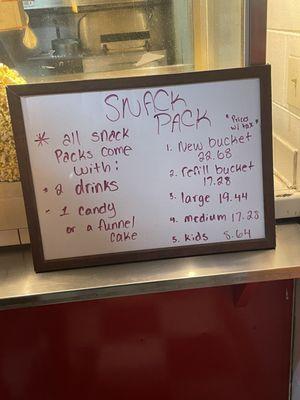 SNACK
PACK
* all snack
Packs come
with:
- 2 drinks
- 1 candy
or a funnel
cake
*Prices
w/ tax*
1. New bucket
22.68
2. refill bucket
17.28
3. large 19.44
4. medium 17.28
5. kids 8.64